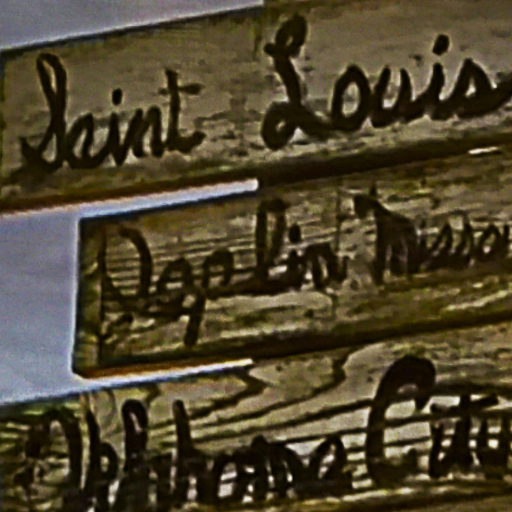 Saint Louis
Joplin Misso
Oklahoma City